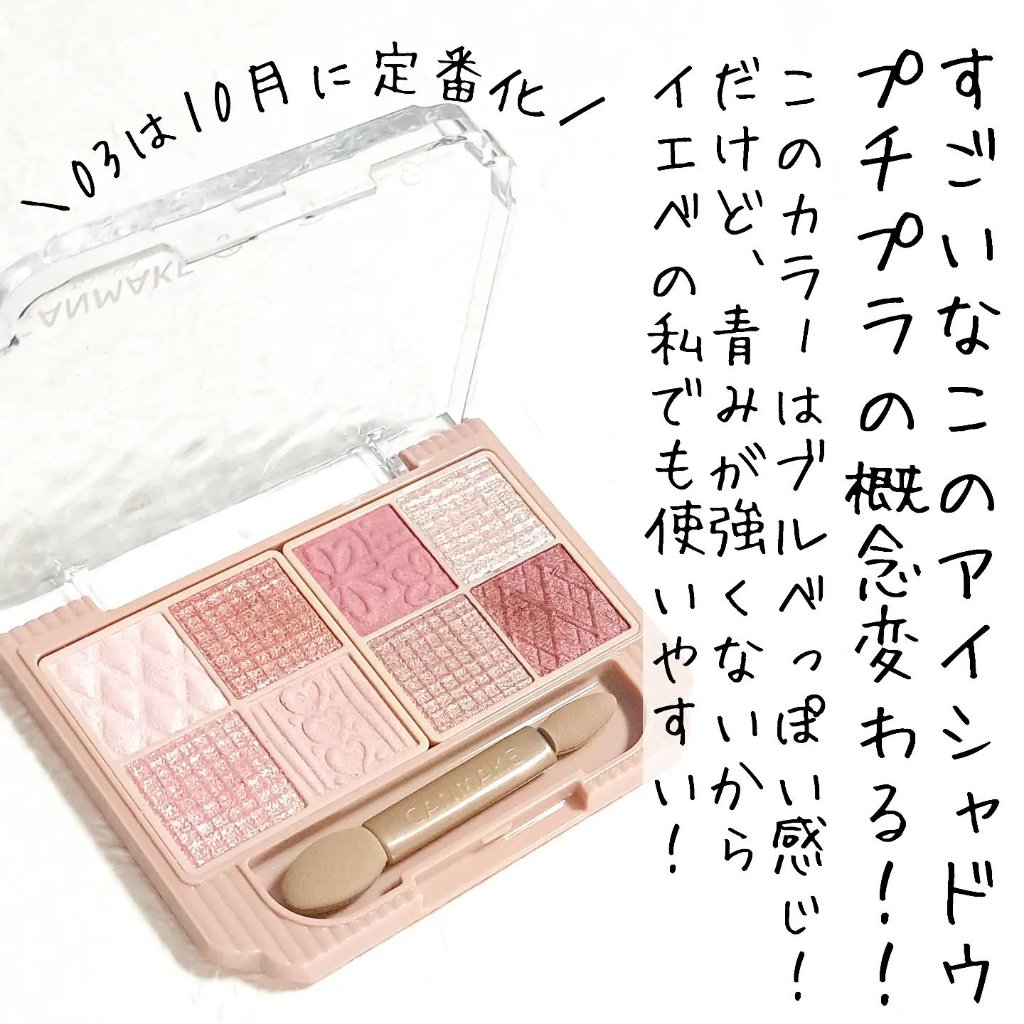 \03は10月に定番化/
すごいなこのアイシャドウ
プチプラの概念変わる！！
このカラーはブルベっぽい感じ！
だけど、青みが強くないから
イエベの私でも使いやすい！
CANMAKE
CANMAKE